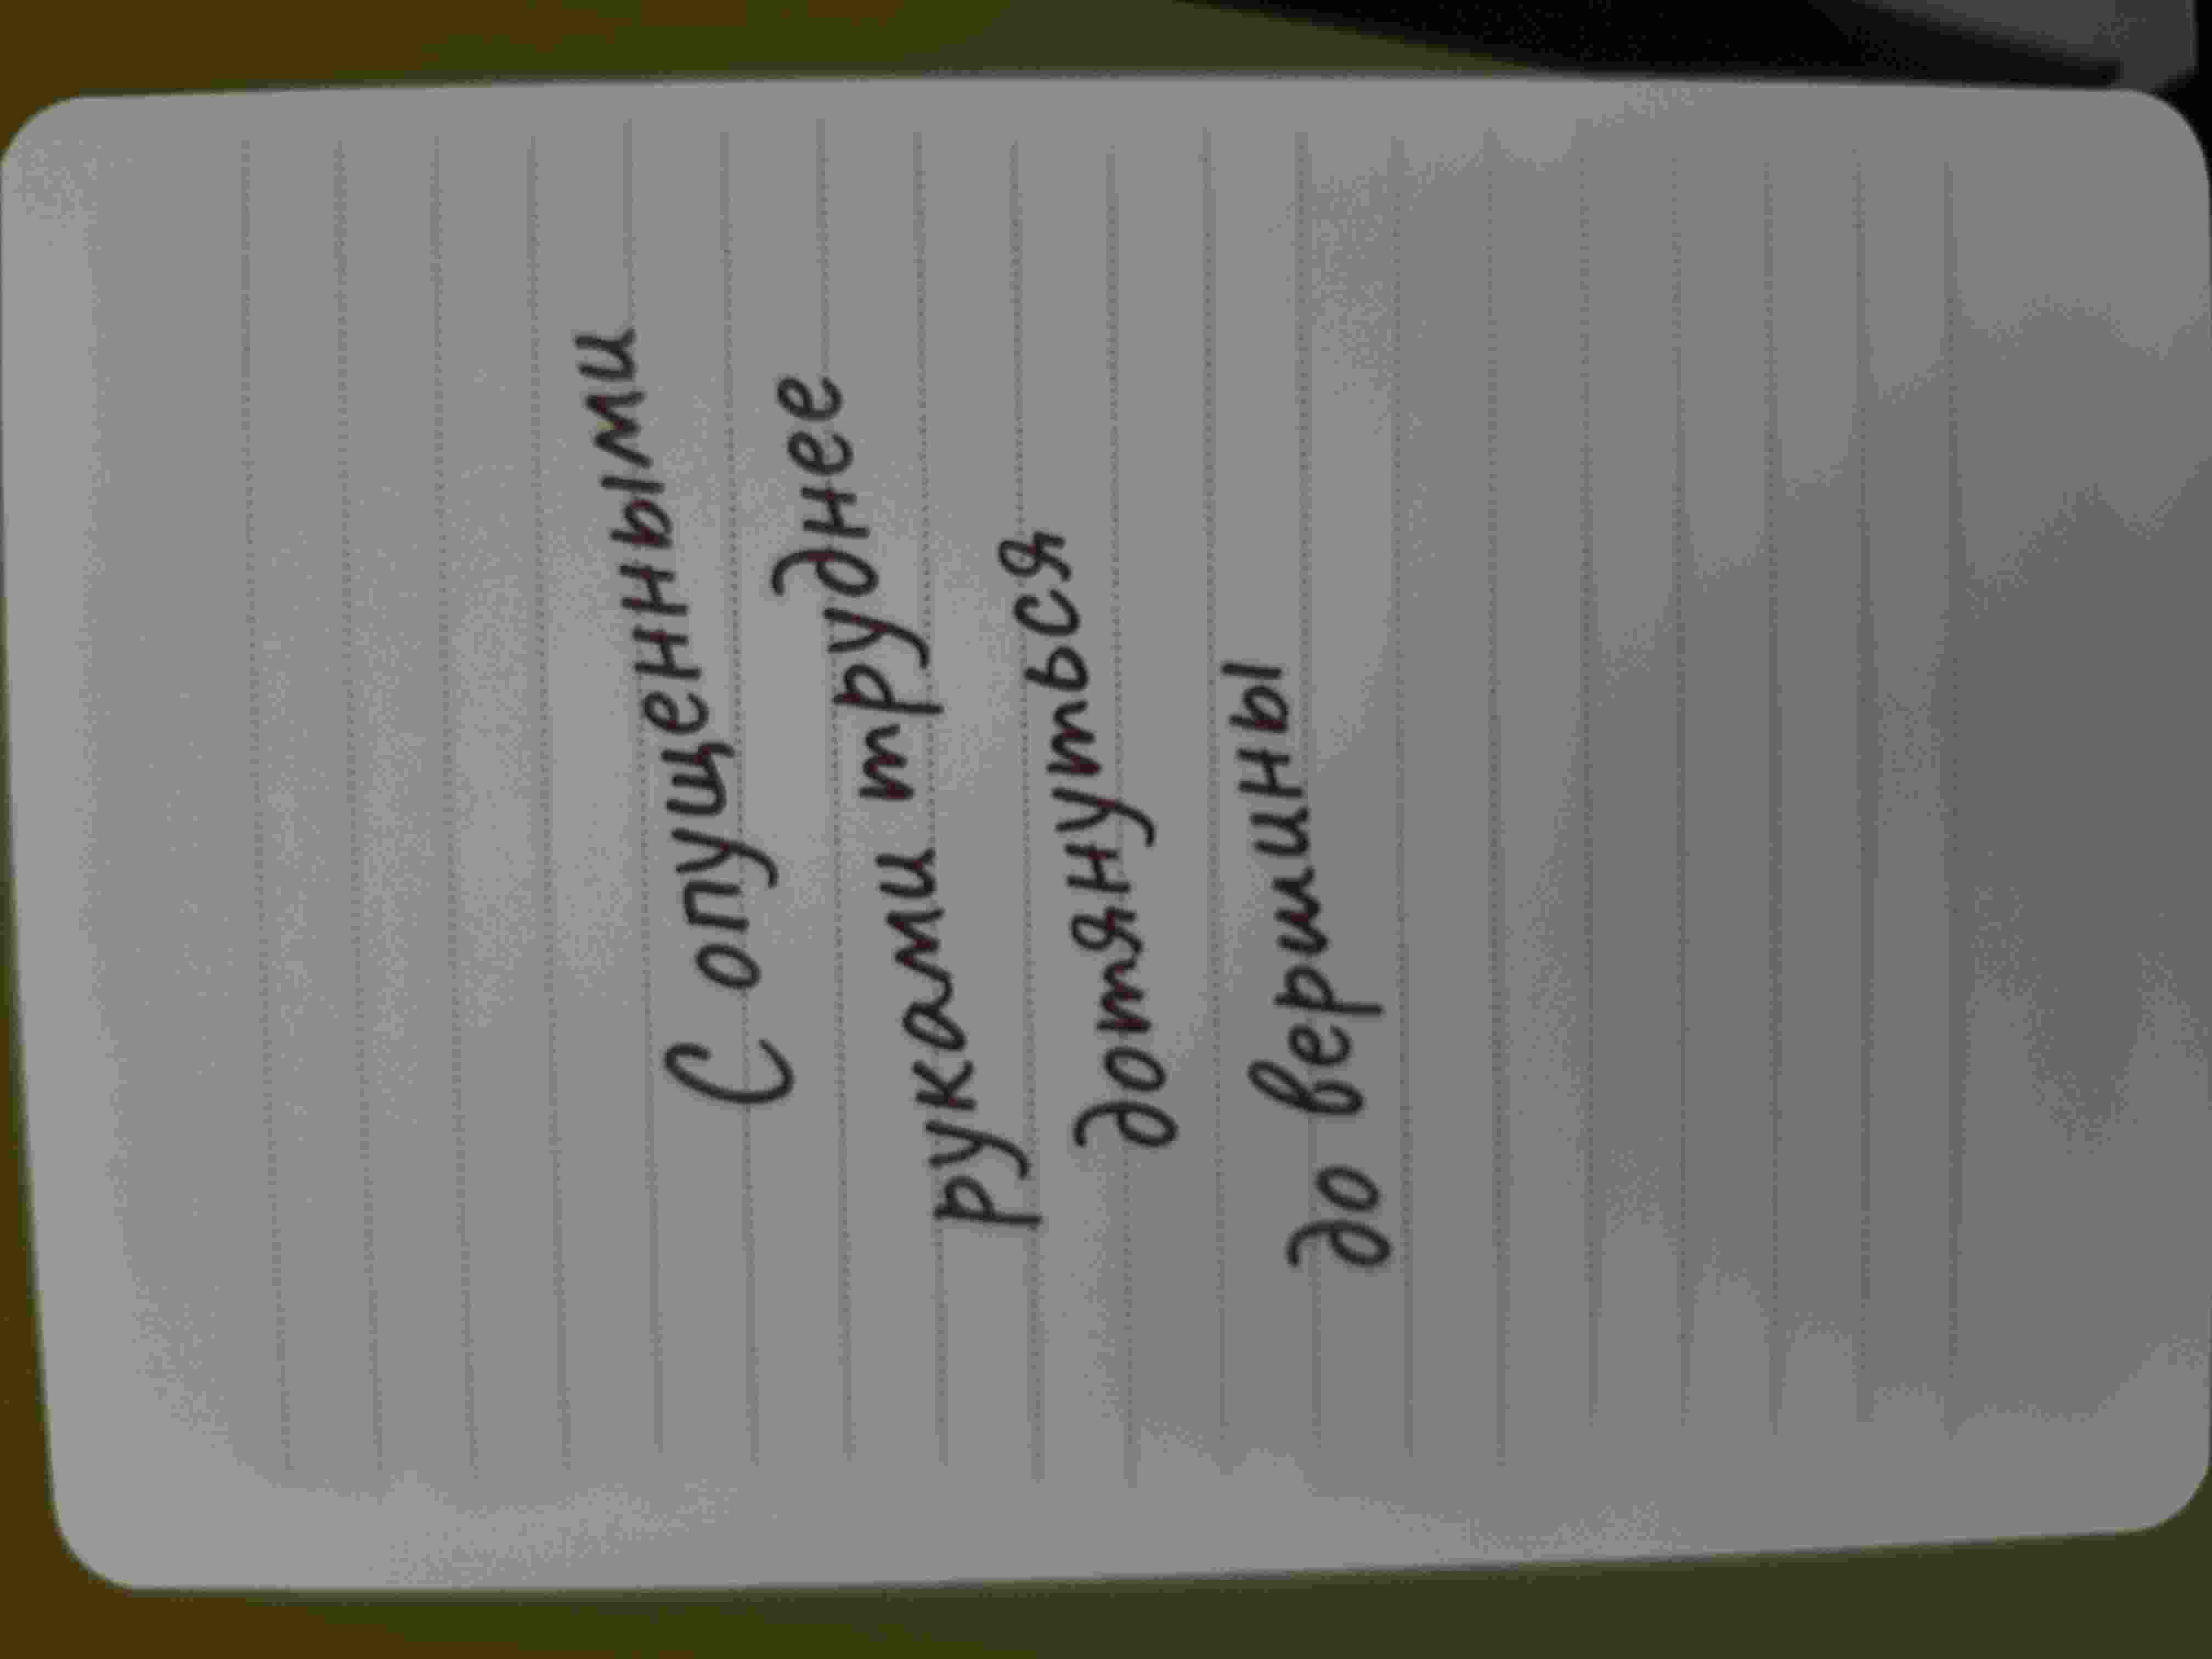 С опущенными
руками труднее
дотянуться
до вершины